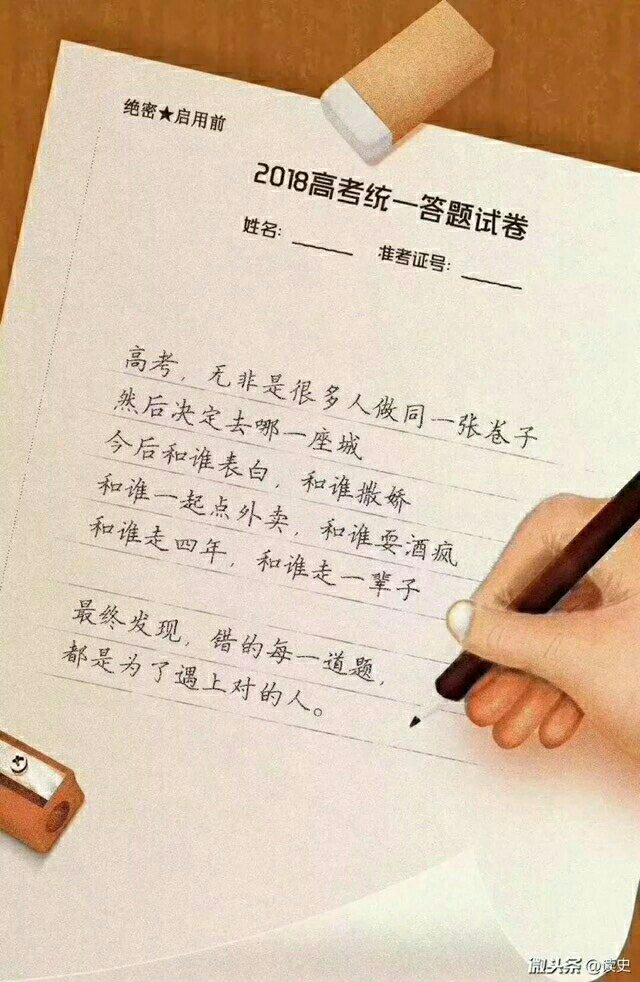 绝密★启用前
2018高考统一答题试卷
姓名：______ 准考证号：______
高考，无非是很多人做同一张卷子
然后决定去哪一座城
今后和谁表白，和谁撒娇
和谁一起点外卖，和谁耍酒疯
和谁走四年，和谁走一辈子
最终发现，错的每一道题，
都是为了遇上对的人。
微头条@读史